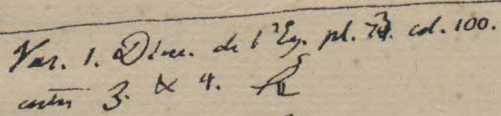 Var. 1. Disc. de l'Eg. pl. 73. col. 100.
entre 3. & 4.